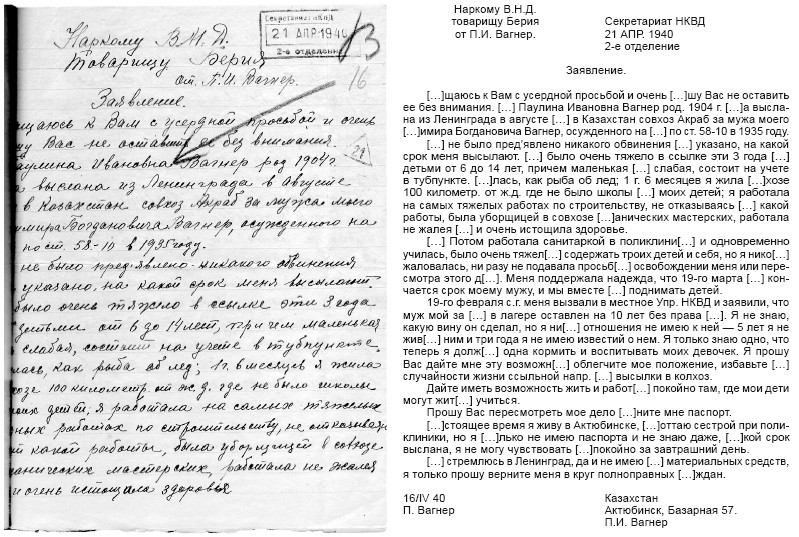 Секретариат НКВД
21 АПР. 1940
2-е отделение
Наркому В.Н.Д.
Товарищу Берия
от П.И. Вагнер.
16
Заявление.
щаюсь к Вам с усердной просьбой и очень
шу Вас не оставить ее без внимания.
Паулина Ивановна Вагнер род 1904 г.
21
а выслана из Ленинграда в августе
в Казахстан совхоз Акраб за мужа моего
имира Богдановича Вагнер, осужденного на
по ст. 58-10 в 1935 году.
не было пред'явлено никакого обвинения
указано, на какой срок меня высылают.
было очень тяжело в ссылке эти 3 года
детьми от 6 до 14 лет, причем маленькая
слабая, состоит на учете в тубпункте.
лась, как рыба об лед; 1 г. 6 месяцев я жила
хозе 100 километр. от ж.д. где не было школы
моих детей; я работала на самых тяжелых
ных работах по строительству, не отказываясь
от какой работы, была уборщицей в совхозе
анических мастерских, работала не жалея
и очень истощила здоровье
Наркому В.Н.Д.
товарищу Берия
от П.И. Вагнер.
Секретариат НКВД
21 АПР. 1940
2-е отделение
Заявление.
[…]щаюсь к Вам с усердной просьбой и очень […]шу Вас не оставить
ее без внимания. […] Паулина Ивановна Вагнер род. 1904 г. […]а высла-
на из Ленинграда в августе […] в Казахстан совхоз Акраб за мужа моего
[…]имира Богдановича Вагнер, осужденного на […] по ст. 58-10 в 1935 году.
[…] не было пред'явлено никакого обвинения […] указано, на какой
срок меня высылают. […] было очень тяжело в ссылке эти 3 года […]
детьми от 6 до 14 лет, причем маленькая […] слабая, состоит на учете
в тубпункте. […]лась, как рыба об лед; 1 г. 6 месяцев я жила […]хозе
100 километр. от ж.д. где не было школы […] моих детей; я работала
на самых тяжелых работах по строительству, не отказываясь […] какой
работы, была уборщицей в совхозе […]анических мастерских, работала
не жалея […] и очень истощила здоровье.
[…] Потом работала санитаркой в поликлини[…] и одновременно
училась, было очень тяжел[…] содержать троих детей и себя, но я нико[…]
жаловалась, ни разу не подавала просьб[…] освобождении меня или пере-
смотра этого д[…]. Меня поддержала надежда, что 19-го марта […] кон-
чается срок моему мужу, и мы вместе […] поднимать детей.
19-го февраля с.г. меня вызвали в местное Упр. НКВД и заявили, что
муж мой за […] в лагере оставлен на 10 лет без права […]. Я не знаю,
какую вину он сделал, но я ни[…] отношения не имею к ней — 5 лет я не
жив[…] ним и три года я не имею известий о нем. Я только знаю одно, что
теперь я долж[…] одна кормить и воспитывать моих девочек. Я прошу
Вас дайте мне эту возможн[…] облегчите мое положение, избавьте […]
случайности жизни ссыльной напр. […] высылки в колхоз.
Дайте иметь возможность жить и работ[…] покойно там, где мои дети
могут жит[…] учиться.
Прошу Вас пересмотреть мое дело […]ните мне паспорт.
[…]стоящее время я живу в Актюбинске, […]оттаю сестрой при поли-
клиники, но я […]лько не имею паспорта и не знаю даже, […]кой срок
выслана, я не могу чувствовать […]покойно за завтрашний день.
[…] стремлюсь в Ленинград, да и не имею […] материальных средств,
я только прошу верните меня в круг полноправных […]ждан.
16/IV 40
П. Вагнер
Казахстан
Актюбинск, Базарная 57.
П.И. Вагнер